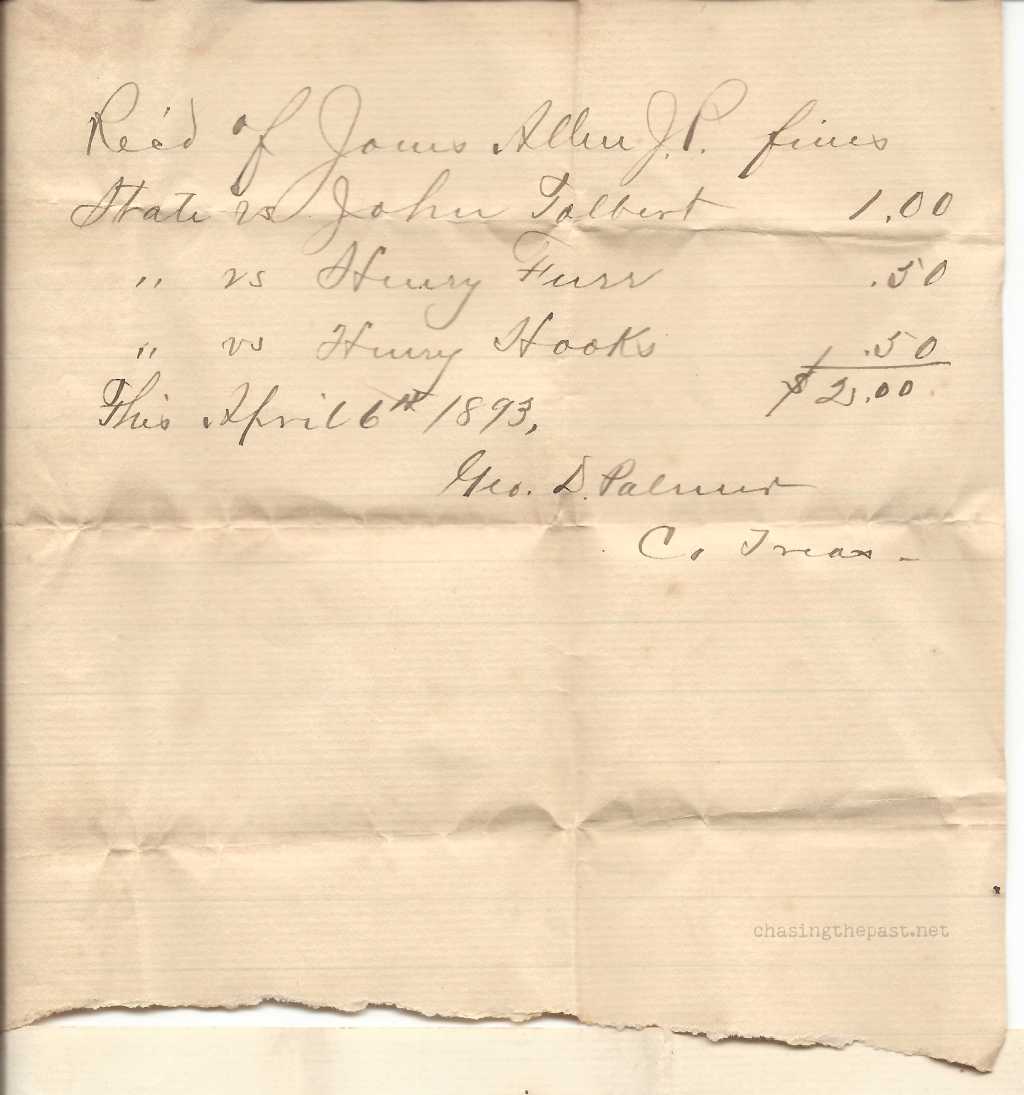 Rec'd of James Allen J.P. fines
State vs John Tolbert 1.00
" vs Henry Furr .50
" vs Henry Hooks .50
$2.00
This April 6th 1893,
Geo. D. Palmer
Co Treas -
chasingthepast.net